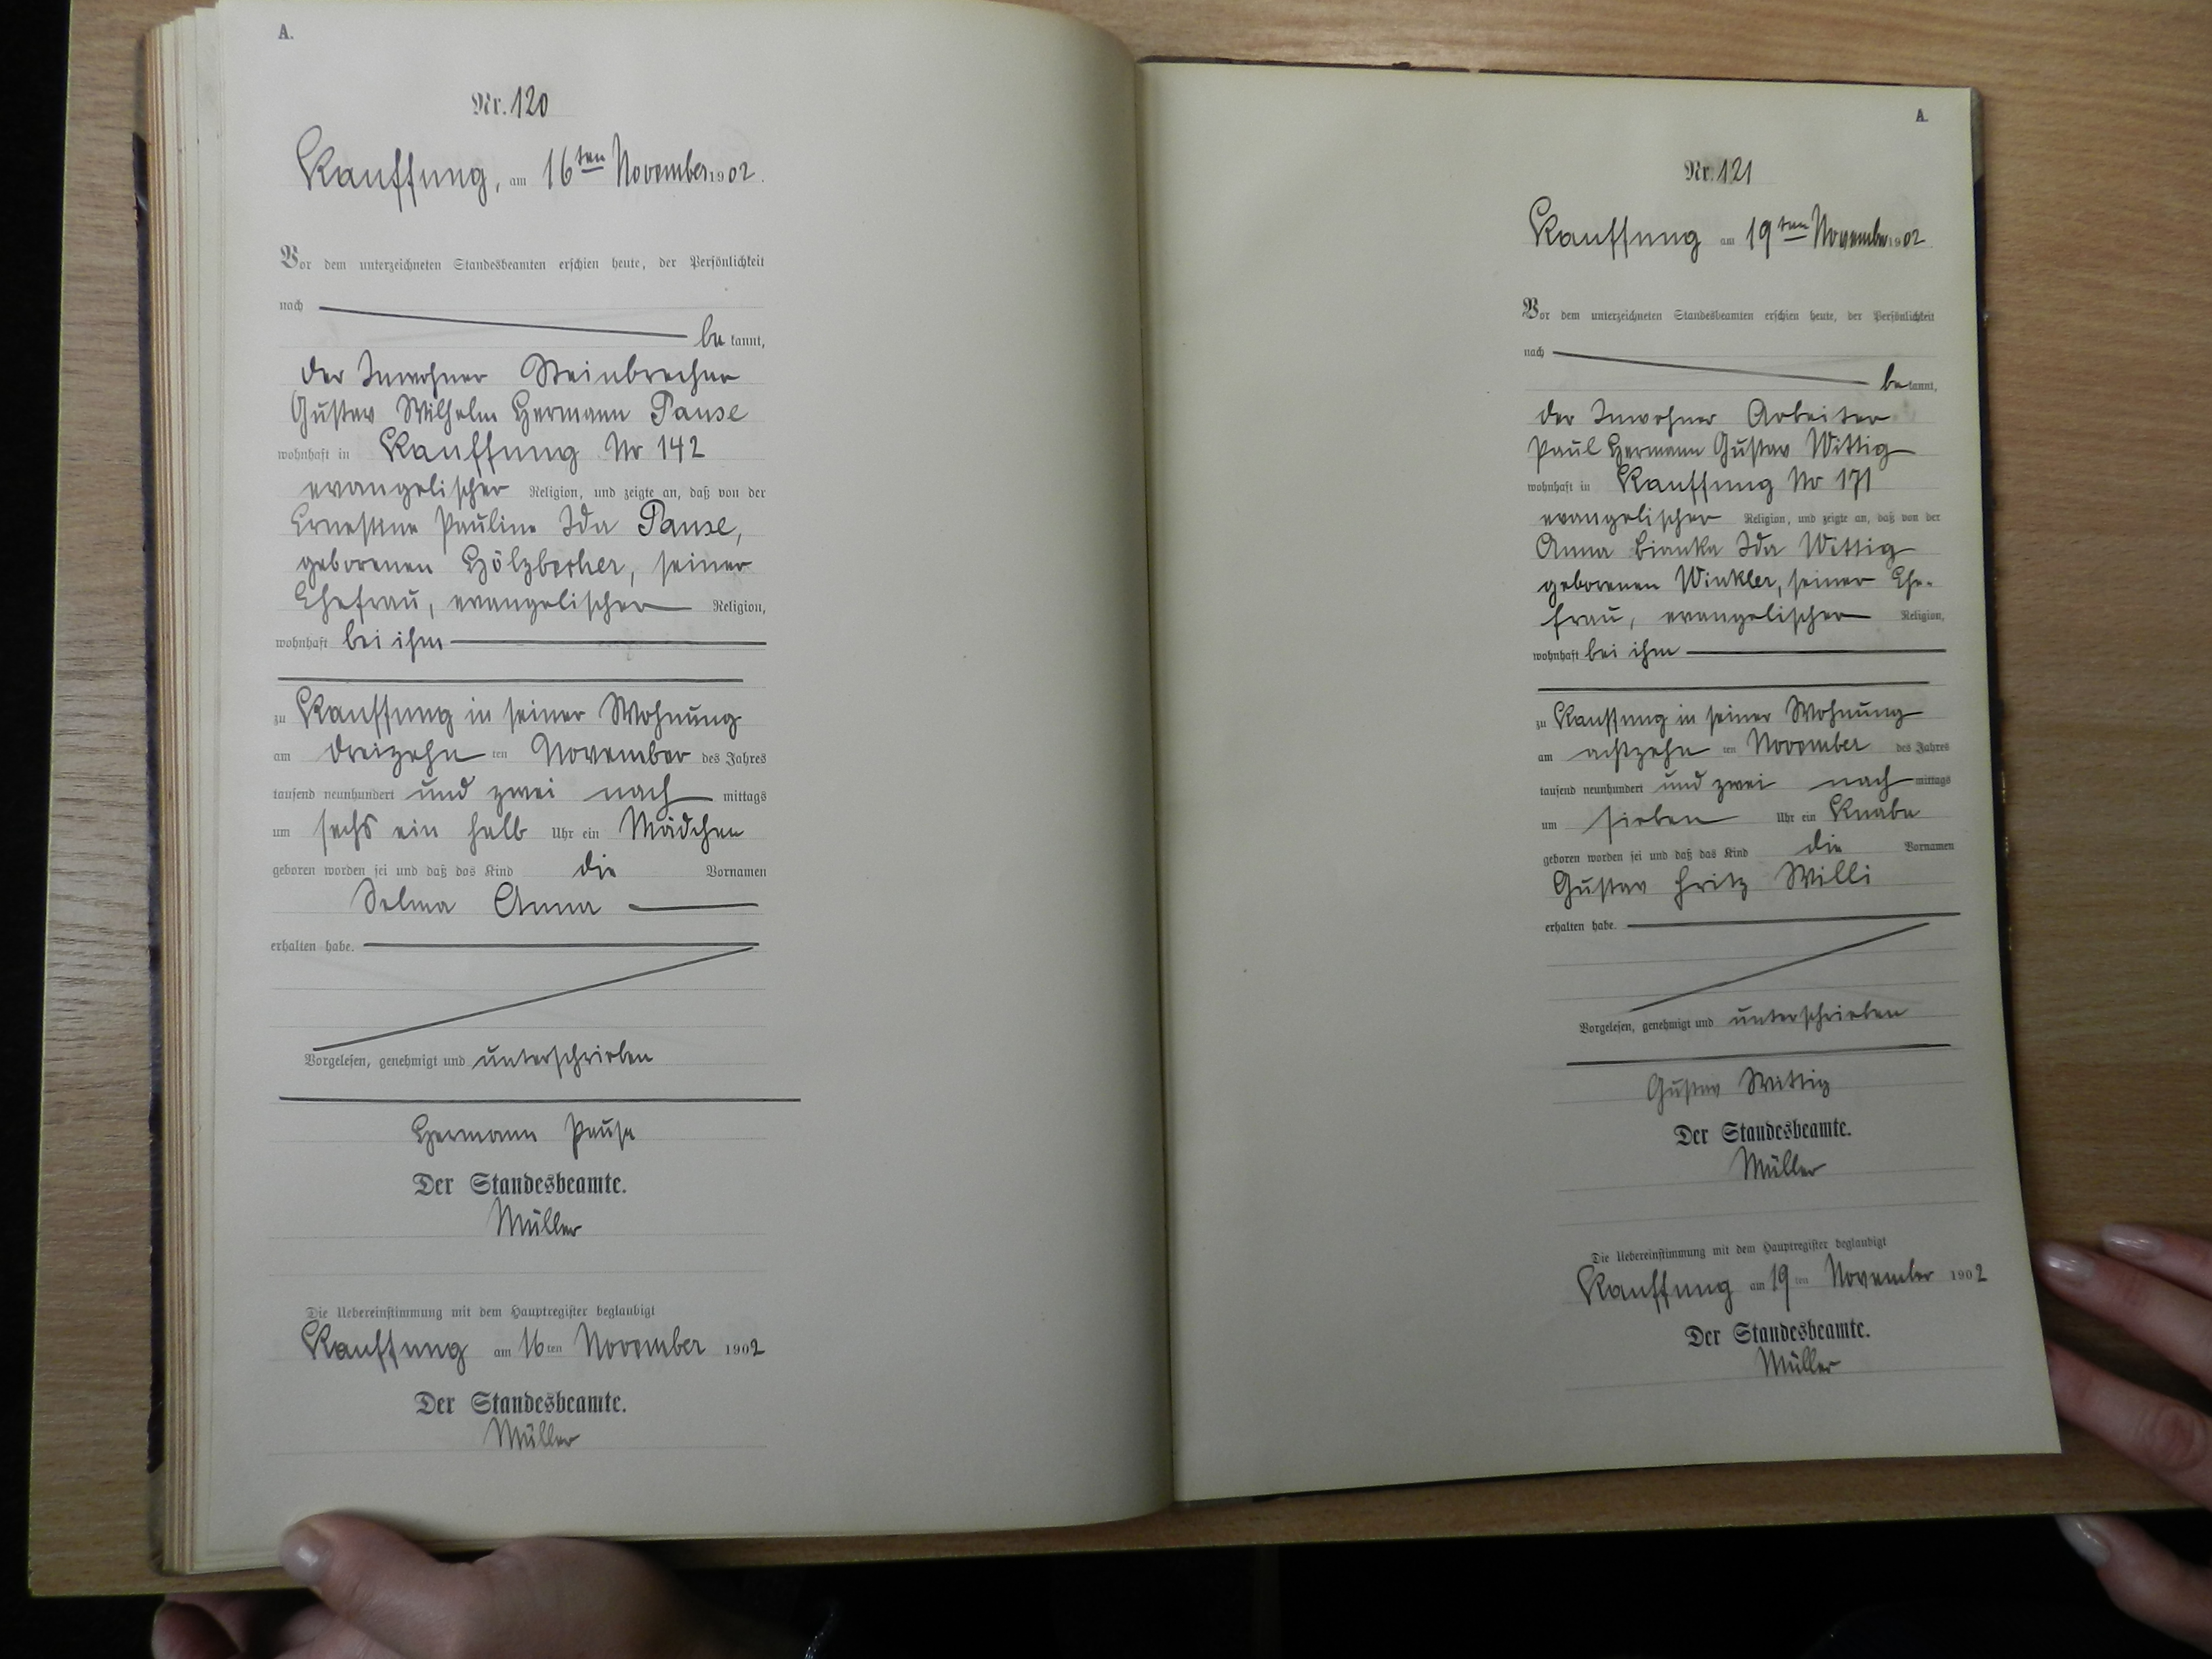 A.
Nr. 120
Kauffung, am 16ten November 1902.
Vor dem unterzeichneten Standesbeamten erschien heute, der Persönlichkeit
nach
be kannt,
der Inwohner Steinbrecher
Gustav Wilhelm Hermann Pause
wohnhaft in Kauffung No 142
evangelischer Religion, und zeigte an, daß von der
Ernestine Pauline Ida Pause,
geborenen Hölzbecher, seiner
Ehefrau, evangelischer Religion,
wohnhaft bei ihm
zu Kauffung in seiner Wohnung
am dreizehn ten November des Jahres
tausend neunhundert und zwei nach mittags
um sechs ein halb Uhr ein Mädchen
geboren worden sei und daß das Kind die Vornamen
Selma Anna
erhalten habe.
Vorgelesen, genehmigt und unterschrieben
Hermann Pause
Der Standesbeamte.
Müller
Die Uebereinstimmung mit dem Hauptregister beglaubigt
Kauffung am 16ten November 1902
Der Standesbeamte.
Müller
A.
Nr. 121
Kauffung am 19ten November 1902
Vor dem unterzeichneten Standesbeamten erschien heute, der Persönlichkeit
nach
be kannt,
der Inwohner Arbeiter
Paul Hermann Gustav Wittig
wohnhaft in Kauffung No 171
evangelischer Religion, und zeigte an, daß von der
Anna Bianka Ida Wittig
geborenen Winkler, seiner Ehe-
frau, evangelischer Religion,
wohnhaft bei ihm
zu Kauffung in seiner Wohnung
am achtzehn ten November des Jahres
tausend neunhundert und zwei nach mittags
um sieben Uhr ein Knabe
geboren worden sei und daß das Kind die Vornamen
Gustav Fritz Willi
erhalten habe.
Vorgelesen, genehmigt und unterschrieben
Gustav Wittig
Der Standesbeamte.
Müller
Die Uebereinstimmung mit dem Hauptregister beglaubigt
Kauffung am 19 ten November 1902
Der Standesbeamte.
Müller